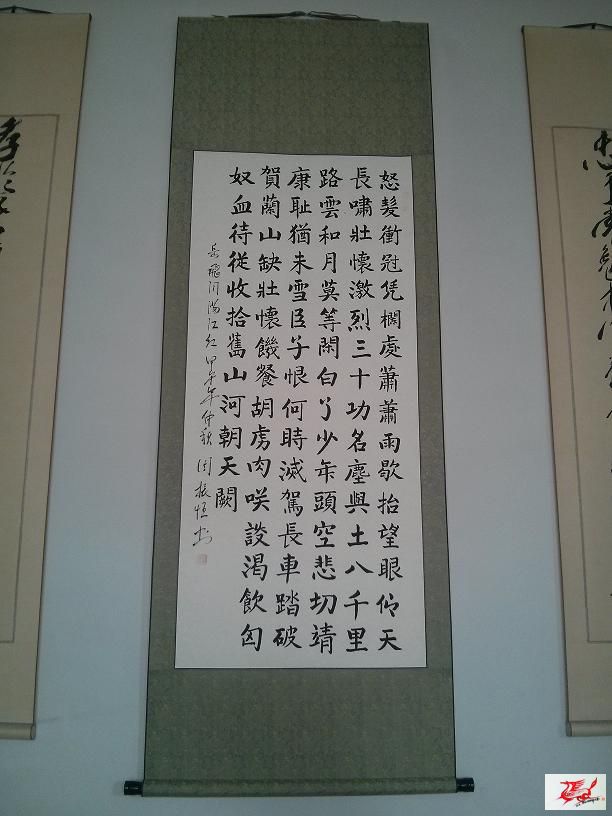 怒髮衝冠凭欄處蕭蕭雨歇抬望眼仰天
長嘯壯懷激烈三十功名塵與土八千里
路雲和月莫等閑白了少年頭空悲切靖
康耻猶未雪臣子恨何時滅駕長車踏破
賀蘭山缺壯懷饑餐胡虜肉咲設渴飲匈
奴血待從收拾舊山河朝天闕
岳飛词滿江红甲午年仲秋振恒书